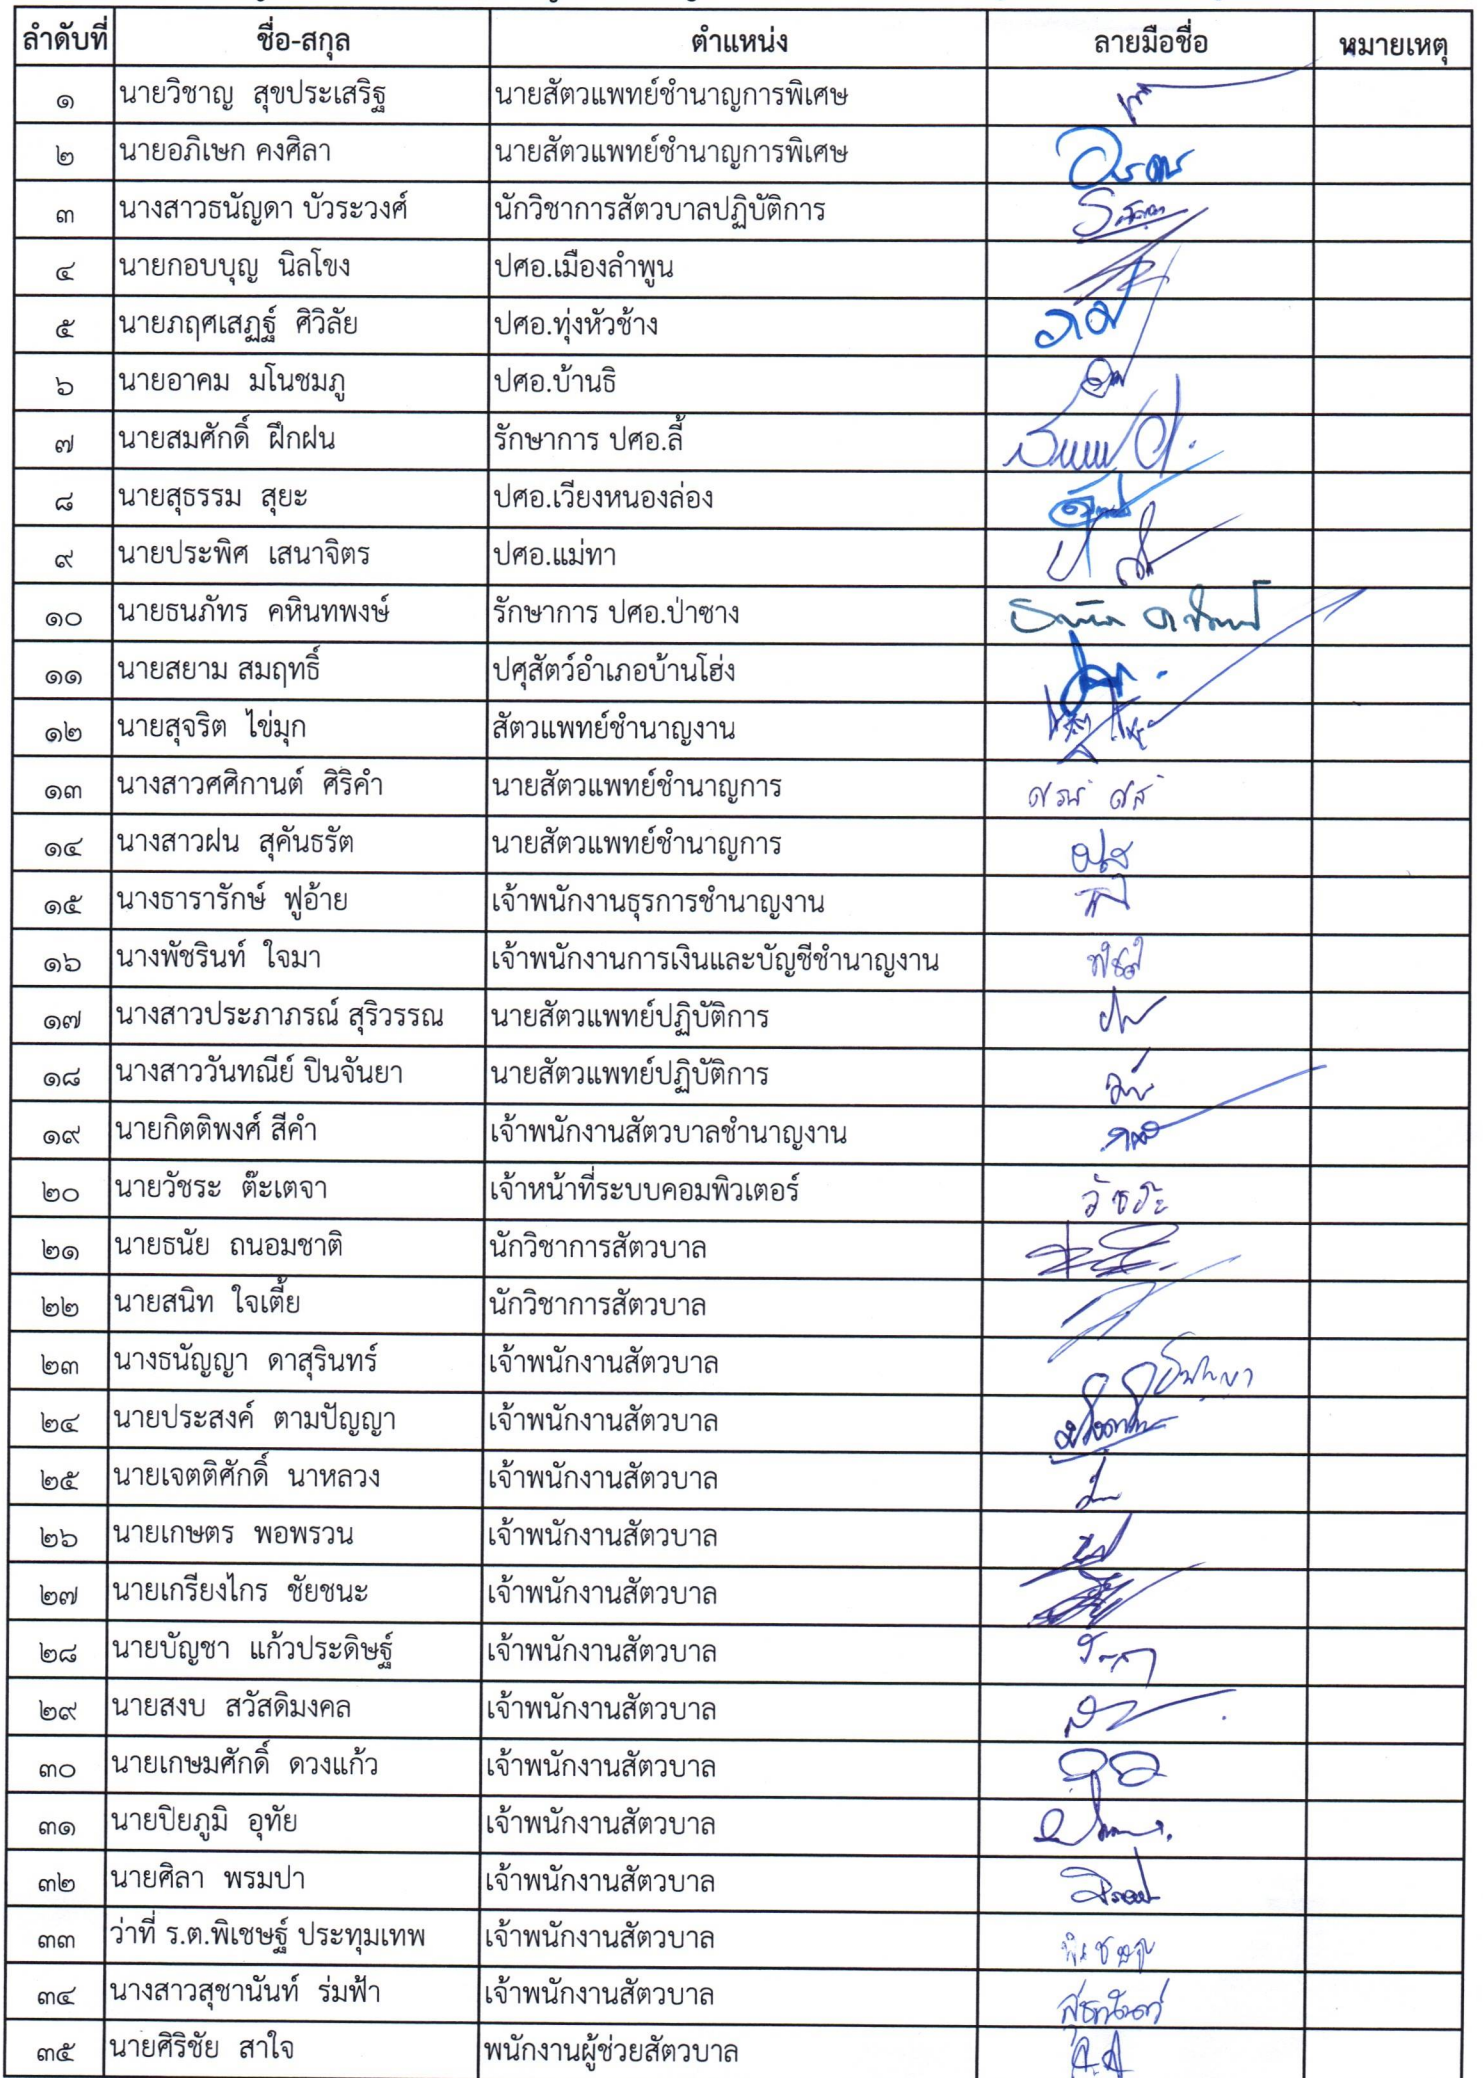 ลำดับที่ ชื่อ-สกุล ตำแหน่ง ลายมือชื่อ หมายเหตุ
๑ นายวิชาญ สุขประเสริฐ นายสัตวแพทย์ชำนาญการพิเศษ
๒ นายอภิเษก คงศิลา นายสัตวแพทย์ชำนาญการพิเศษ
๓ นางสาวธนัญดา บัวระวงศ์ นักวิชาการสัตวบาลปฏิบัติการ
๔ นายกอบบุญ นิลโขง ปศอ.เมืองลำพูน
๕ นายภฤศเสฏฐ์ ศิวิลัย ปศอ.ทุ่งหัวช้าง
๖ นายอาคม มโนชมภู ปศอ.บ้านธิ
๗ นายสมศักดิ์ ฝึกฝน รักษาการ ปศอ.ลี้
๘ นายสุธรรม สุยะ ปศอ.เวียงหนองล่อง
๙ นายประพิศ เสนาจิตร ปศอ.แม่ทา
๑๐ นายธนภัทร คหินทพงษ์ รักษาการ ปศอ.ป่าซาง
๑๑ นายสยาม สมฤทธิ์ ปศุสัตว์อำเภอบ้านโฮ่ง
๑๒ นายสุจริต ไข่มุก สัตวแพทย์ชำนาญงาน
๑๓ นางสาวศศิกานต์ ศิริคำ นายสัตวแพทย์ชำนาญการ
๑๔ นางสาวฝน สุคันธรัต นายสัตวแพทย์ชำนาญการ
๑๕ นางธารารักษ์ ฟูอ้าย เจ้าพนักงานธุรการชำนาญงาน
๑๖ นางพัชรินท์ ใจมา เจ้าพนักงานการเงินและบัญชีชำนาญงาน
๑๗ นางสาวประภาภรณ์ สุริวรรณ นายสัตวแพทย์ปฏิบัติการ
๑๘ นางสาววันทณีย์ ปินจันยา นายสัตวแพทย์ปฏิบัติการ
๑๙ นายกิตติพงศ์ สีคำ เจ้าพนักงานสัตวบาลชำนาญงาน
๒๐ นายวัชระ ต๊ะเตจา เจ้าหน้าที่ระบบคอมพิวเตอร์ วัชระ
๒๑ นายธนัย ถนอมชาติ นักวิชาการสัตวบาล
๒๒ นายสนิท ใจเตี้ย นักวิชาการสัตวบาล
๒๓ นางธนัญญา ดาสุรินทร์ เจ้าพนักงานสัตวบาล
๒๔ นายประสงค์ ตามปัญญา เจ้าพนักงานสัตวบาล
๒๕ นายเจตติศักดิ์ นาหลวง เจ้าพนักงานสัตวบาล
๒๖ นายเกษตร พอพรวน เจ้าพนักงานสัตวบาล
๒๗ นายเกรียงไกร ชัยชนะ เจ้าพนักงานสัตวบาล
๒๘ นายบัญชา แก้วประดิษฐ์ เจ้าพนักงานสัตวบาล
๒๙ นายสงบ สวัสดิมงคล เจ้าพนักงานสัตวบาล
๓๐ นายเกษมศักดิ์ ดวงแก้ว เจ้าพนักงานสัตวบาล
๓๑ นายปิยภูมิ อุทัย เจ้าพนักงานสัตวบาล
๓๒ นายศิลา พรมปา เจ้าพนักงานสัตวบาล
๓๓ ว่าที่ ร.ต.พิเชษฐ์ ประทุมเทพ เจ้าพนักงานสัตวบาล
๓๔ นางสาวสุชานันท์ ร่มฟ้า เจ้าพนักงานสัตวบาล
๓๕ นายศิริชัย สาใจ พนักงานผู้ช่วยสัตวบาล